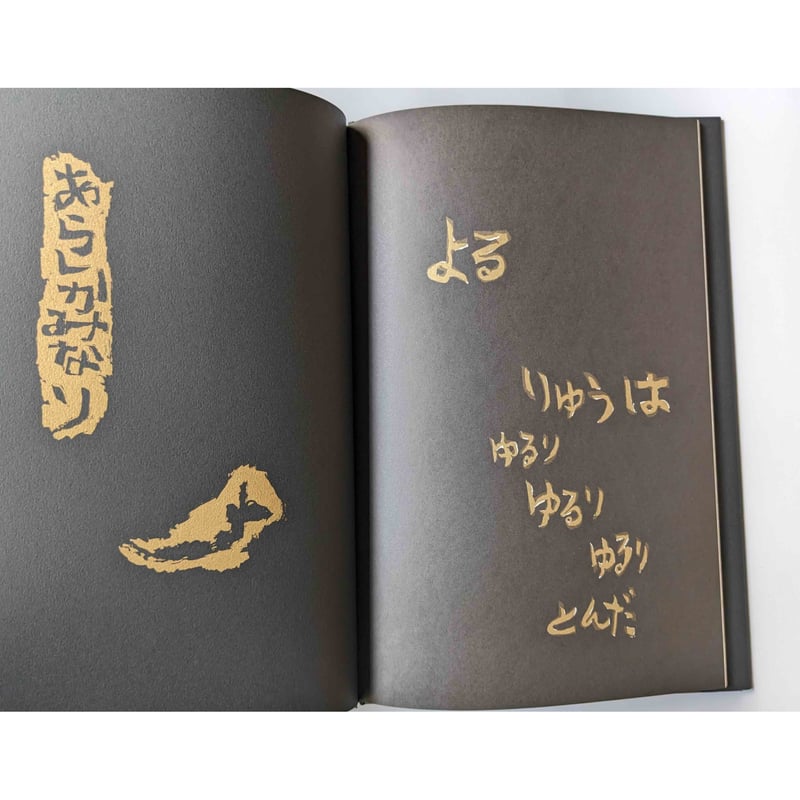 あらしかみなり
よる
りゅうは
ゆるり
ゆるり
ゆるり
とんだ